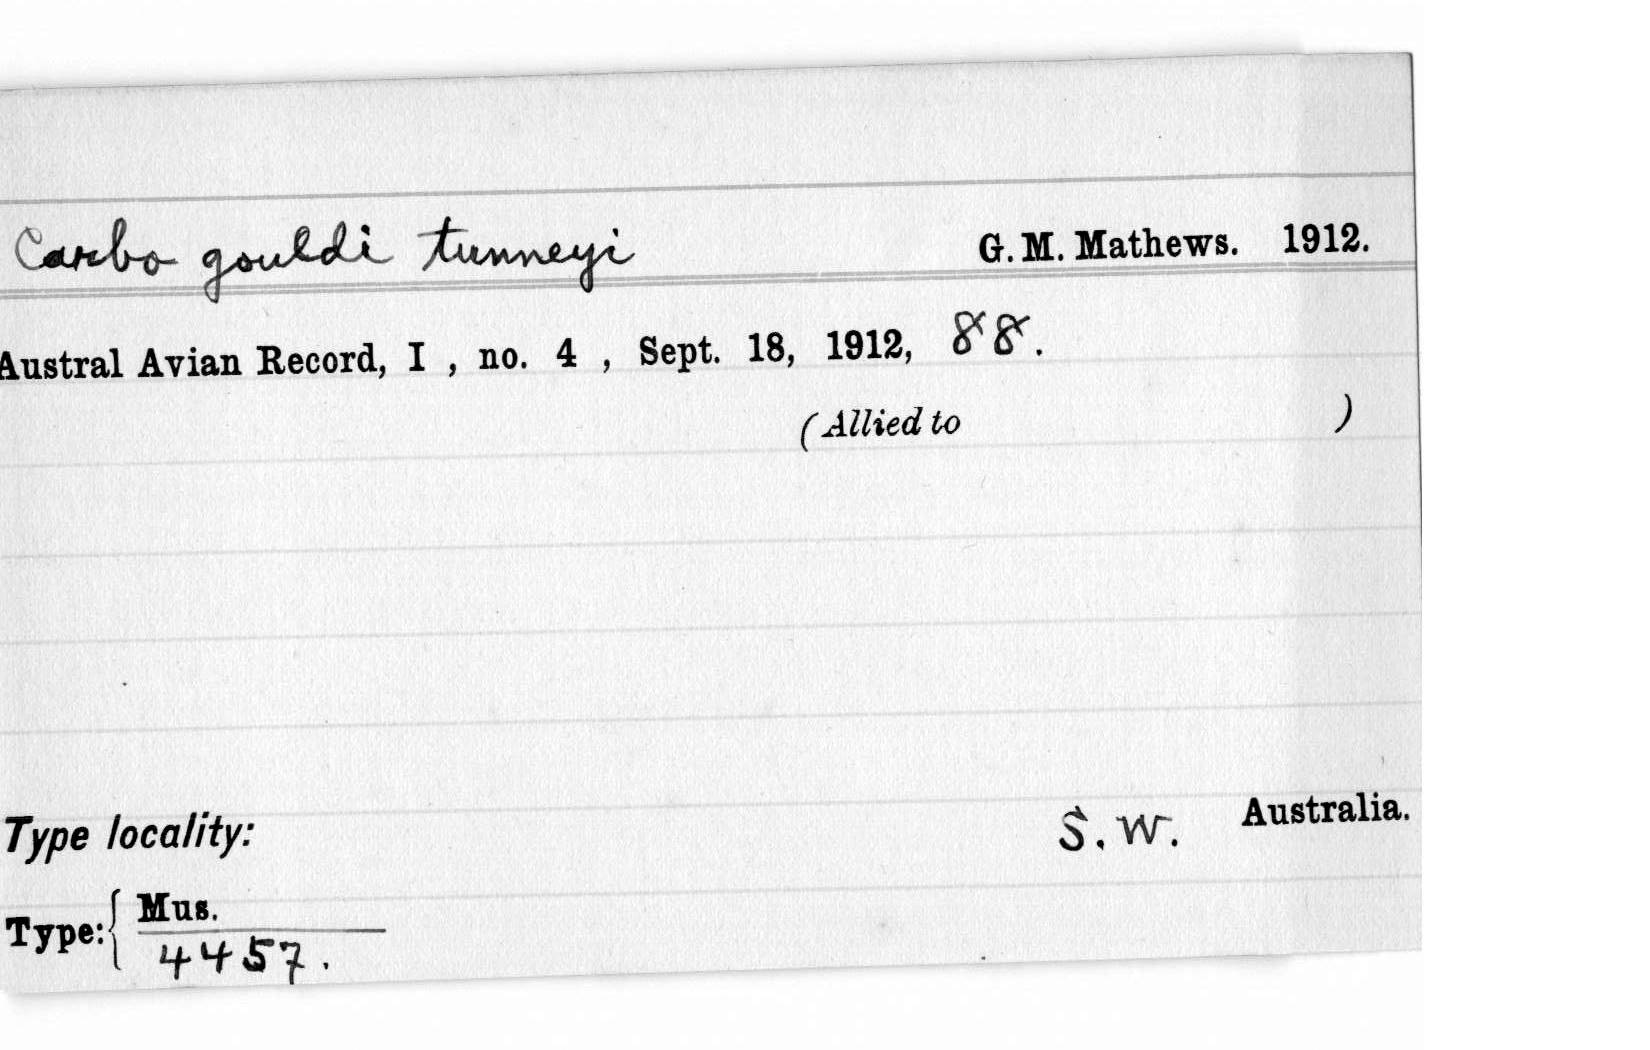 Carbo gouldi tunneyi G. M. Mathews. 1912.
Austral Avian Record, I , no. 4 , Sept. 18, 1912, 88.
(Allied to )
Type locality: S. W. Australia.
Type: { Mus.
4457.